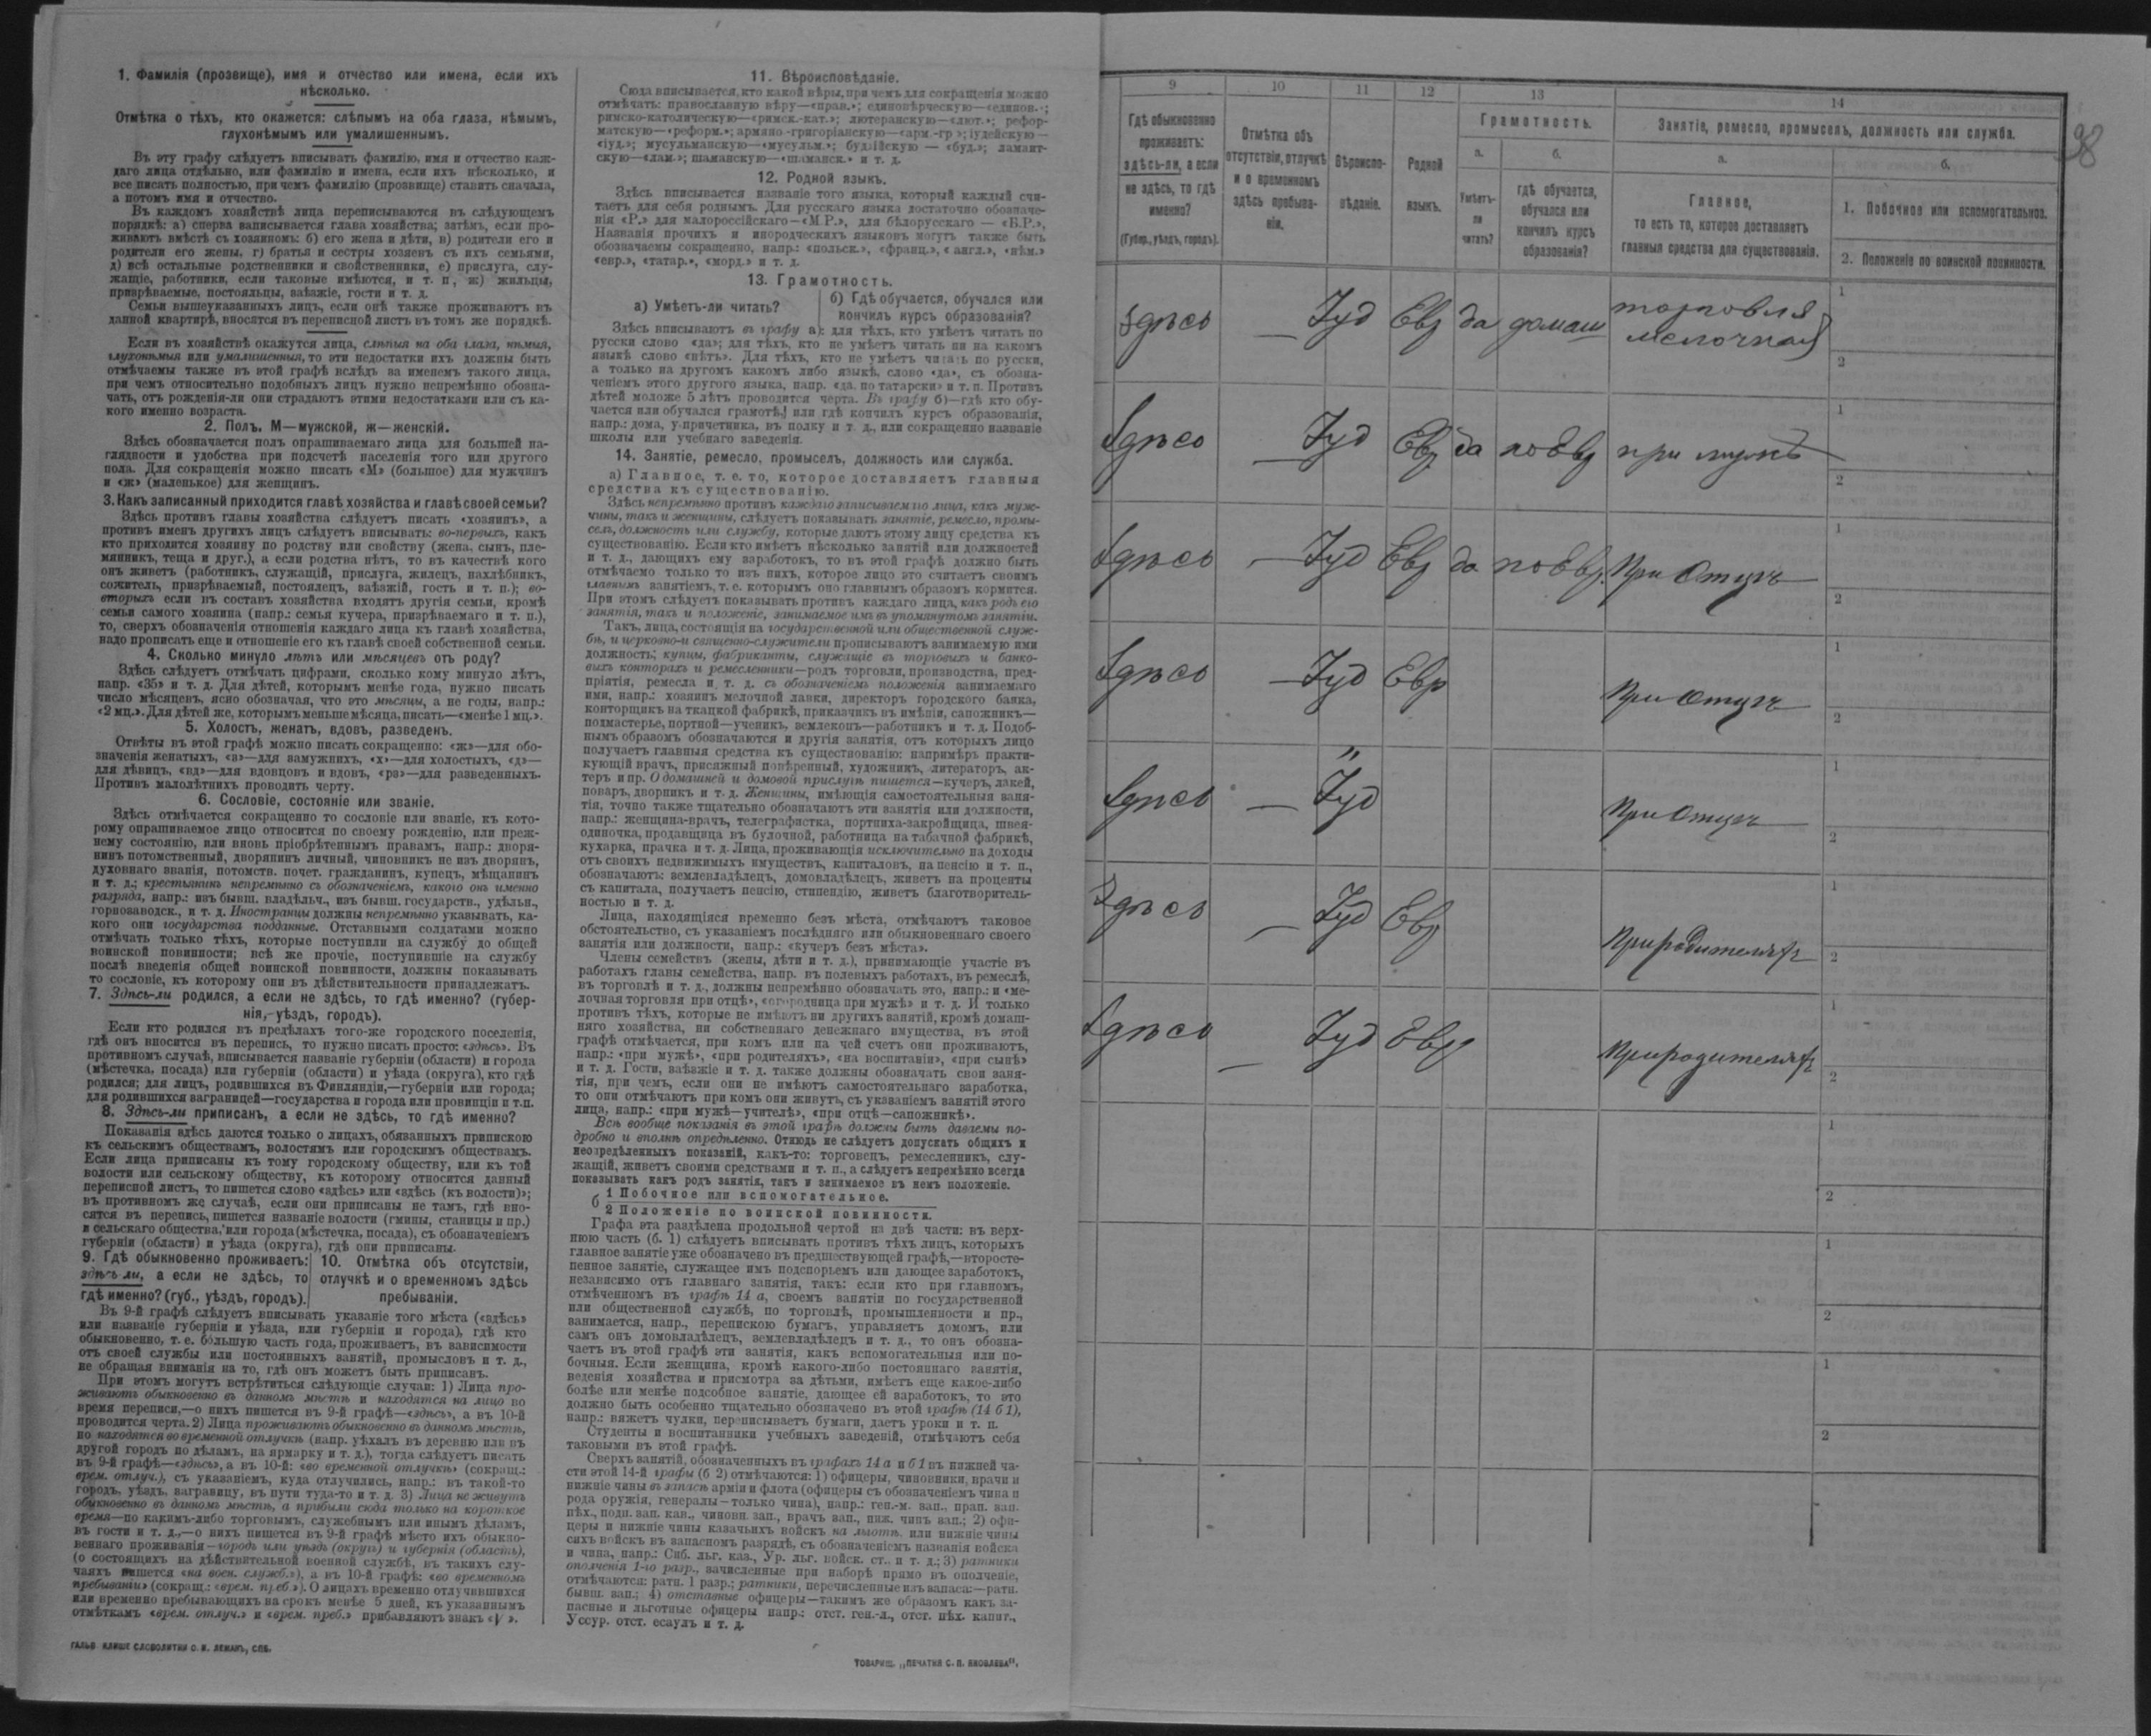 1. Фамилія (прозвище), имя и отчество или имена, если ихъ
нѣсколько.
Отмѣтка о тѣхъ, кто окажется: слѣпымъ на оба глаза, нѣмымъ,
глухонѣмымъ или умалишеннымъ.
Въ эту графу слѣдуетъ вписывать фамилію, имя и отчество каж-
даго лица отдѣльно, или фамилію и имена, если ихъ нѣсколько, и
все писать полностью, при чемъ фамилію (прозвище) ставить сначала,
а потомъ имя и отчество.
Въ каждомъ хозяйствѣ лица переписываются въ слѣдующемъ
порядкѣ: а) сперва записывается глава хозяйства; затѣмъ, если про-
живаютъ вмѣстѣ съ хозяиномъ: б) его жена и дѣти, в) родители его и
родители его жены, г) братья и сестры хозяевъ съ ихъ семьями,
д) всѣ остальные родственники и свойственники, е) прислуга, слу-
жащіе, работники, если таковые имѣются, и т. п., ж) жильцы,
призрѣваемые, постояльцы, заѣзжіе, гости и т. д.
Семьи вышеуказанныхъ лицъ, если онѣ также проживаютъ въ
данной квартирѣ, вносятся въ переписной листъ въ томъ же порядкѣ.
Если въ хозяйствѣ окажутся лица, слѣпыя на оба глаза, нѣмыя,
глухонѣмыя или умалишенныя, то эти недостатки ихъ должны быть
отмѣчаемы также въ этой графѣ вслѣдъ за именемъ такого лица,
при чемъ относительно подобныхъ лицъ нужно непремѣнно обозна-
чать, отъ рожденія-ли они страдаютъ этими недостатками или съ ка-
кого именно возраста.
2. Полъ. М—мужской, ж—женскій.
Здѣсь обозначается полъ опрашиваемаго лица для большей на-
глядности и удобства при подсчетѣ населенія того или другого
пола. Для сокращенія можно писать «М» (большое) для мужчинъ
и «ж» (маленькое) для женщинъ.
3. Какъ записанный приходится главѣ хозяйства и главѣ своей семьи?
Здѣсь противъ главы хозяйства слѣдуетъ писать «хозяинъ», а
противъ именъ другихъ лицъ слѣдуетъ вписывать: во-первыхъ, какъ
кто приходится хозяину по родству или свойству (жена, сынъ, пле-
мянникъ, теща и друг.), а если родства нѣтъ, то въ качествѣ кого
онъ живетъ (работникъ, служащій, прислуга, жилецъ, нахлѣбникъ,
сожитель, призрѣваемый, постоялецъ, заѣзжій, гость и т. п.); во-
вторыхъ если въ составъ хозяйства входятъ другія семьи, кромѣ
семьи самого хозяина (напр.: семья кучера, призрѣваемаго и т. п.),
то, сверхъ обозначенія отношенія каждаго лица къ главѣ хозяйства,
надо прописать еще и отношеніе его къ главѣ своей собственной семьи.
4. Сколько минуло лѣтъ или мѣсяцевъ отъ роду?
Здѣсь слѣдуетъ отмѣчать цифрами, сколько кому минуло лѣтъ,
напр. «35» и т. д. Для дѣтей, которымъ менѣе года, нужно писать
число мѣсяцевъ, ясно обозначая, что это мѣсяцы, а не годы, напр.:
«2 мц.». Для дѣтей же, которымъ меньше мѣсяца, писать—«менѣе 1 мц.».
5. Холостъ, женатъ, вдовъ, разведенъ.
Отвѣты въ этой графѣ можно писать сокращенно: «ж»—для обо-
значенія женатыхъ, «з»—для замужнихъ, «х»—для холостыхъ, «д»—
для дѣвицъ, «вд»—для вдовцовъ и вдовъ, «рз»—для разведенныхъ.
Противъ малолѣтнихъ проводить черту.
6. Сословіе, состояніе или званіе.
Здѣсь отмѣчается сокращенно то сословіе или званіе, къ кото-
рому опрашиваемое лицо относится по своему рожденію, или преж-
нему состоянію, или вновь пріобрѣтеннымъ правамъ, напр.: дворя-
нинъ потомственный, дворянинъ личный, чиновникъ не изъ дворянъ,
духовнаго званія, потомств. почет. гражданинъ, купецъ, мѣщанинъ
и т. д.; крестьянинъ непремѣнно съ обозначеніемъ, какого онъ именно
разряда, напр.: изъ бывш. владѣльч., изъ бывш. государств., удѣльн.,
горнозаводск., и т. д. Иностранцы должны непремѣнно указывать, ка-
кого они государства подданные. Отставными солдатами можно
отмѣчать только тѣхъ, которые поступили на службу до общей
воинской повинности; всѣ же прочіе, поступившіе на службу
послѣ введенія общей воинской повинности, должны показывать
то сословіе, къ которому они въ дѣйствительности принадлежатъ.
7. Здѣсь-ли родился, а если не здѣсь, то гдѣ именно? (губер-
нія, уѣздъ, городъ).
Если кто родился въ предѣлахъ того-же городского поселенія,
гдѣ онъ вносится въ перепись, то нужно писать просто: «здѣсь». Въ
противномъ случаѣ, вписывается названіе губерніи (области) и города
(мѣстечка, посада) или губерніи (области) и уѣзда (округа), кто гдѣ
родился; для лицъ, родившихся въ Финляндіи,—губерніи или города;
для родившихся заграницей—государства и города или провинціи и т.п.
8. Здѣсь-ли приписанъ, а если не здѣсь, то гдѣ именно?
Показанія здѣсь даются только о лицахъ, обязанныхъ припискою
къ сельскимъ обществамъ, волостямъ или городскимъ обществамъ.
Если лица приписаны къ тому городскому обществу, или къ той
волости или сельскому обществу, къ которому относится данный
переписной листъ, то пишется слово «здѣсь» или «здѣсь (къ волости)»;
въ противномъ же случаѣ, если они приписаны не тамъ, гдѣ вно-
сятся въ перепись, пишется названіе волости (гмины, станицы и пр.)
и сельскаго общества, или города (мѣстечка, посада), съ обозначеніемъ
губерніи (области) и уѣзда (округа), гдѣ они приписаны.
9. Гдѣ обыкновенно проживаетъ:
здѣсь-ли, а если не здѣсь, то
гдѣ именно? (губ., уѣздъ, городъ).
10. Отмѣтка объ отсутствіи,
отлучкѣ и о временномъ здѣсь
пребываніи.
Въ 9-й графѣ слѣдуетъ вписывать указаніе того мѣста («здѣсь»
или названіе губерніи и уѣзда, или губерніи и города), гдѣ кто
обыкновенно, т. е. большую часть года, проживаетъ, въ зависимости
отъ своей службы или постоянныхъ занятій, промысловъ и т. д.,
не обращая вниманія на то, гдѣ онъ можетъ быть приписанъ.
При этомъ могутъ встрѣтиться слѣдующіе случаи: 1) Лица про-
живаютъ обыкновенно въ данномъ мѣстѣ и находятся на лицо во
время переписи,—о нихъ пишется въ 9-й графѣ—«здѣсь», а въ 10-й
проводится черта. 2) Лица проживаютъ обыкновенно въ данномъ мѣстѣ,
но находятся во временной отлучкѣ (напр. уѣхалъ въ деревню или въ
другой городъ по дѣламъ, на ярмарку и т. д.), тогда слѣдуетъ писать
въ 9-й графѣ—«здѣсь», а въ 10-й: «во временной отлучкѣ» (сокращ.:
врем. отлуч.), съ указаніемъ, куда отлучились, напр.: въ такой-то
городъ, уѣздъ, заграницу, въ пути туда-то и т. д. 3) Лица не живутъ
обыкновенно въ данномъ мѣстѣ, а прибыли сюда только на короткое
время—по какимъ-либо торговымъ, служебнымъ или инымъ дѣламъ,
въ гости и т. д.,—о нихъ пишется въ 9-й графѣ мѣсто ихъ обыкно-
веннаго проживанія—городъ или уѣздъ (округъ) и губернія (область),
(о состоящихъ на дѣйствительной военной службѣ, въ такихъ слу-
чаяхъ пишется «на воен. служб.»), а въ 10-й графѣ: «во временномъ
пребываніи» (сокращ.: «врем. преб.»). О лицахъ временно отлучившихся
или временно пребывающихъ на срокъ менѣе 5 дней, къ указаннымъ
отмѣткамъ «врем. отлуч.» и «врем. преб.» прибавляютъ знакъ «V».
ГАЛЬВ КЛИШЕ СЛОВОЛИТНИ О. И. ЛЕМАНЪ, СПБ.
11. Вѣроисповѣданіе.
Сюда вписывается, кто какой вѣры, при чемъ для сокращенія можно
отмѣчать: православную вѣру—«прав.»; единовѣрческую—«единов.»;
римско-католическую—«римск.-кат.»; лютеранскую—«лют.»; рефор-
матскую—«реформ.»; армяно-григоріанскую—«арм.-гр»; іудейскую—
«іуд.»; мусульманскую—«мусульм.»; буддійскую — «буд.»; ламаит-
скую—«лам.»; шаманскую—«шаманск.» и т. д.
12. Родной языкъ.
Здѣсь вписывается названіе того языка, который каждый счи-
таетъ для себя роднымъ. Для русскаго языка достаточно обозначе-
нія «Р.» для малороссійскаго—«М.Р.», для бѣлорусскаго — «Б.Р.»,
Названія прочихъ и инородческихъ языковъ могутъ также быть
обозначаемы сокращенно, напр.: «польск.», «франц.», «англ.», «нѣм.»
«евр.», «татар.», «морд.» и т. д.
13. Грамотность.
а) Умѣетъ-ли читать?
б) Гдѣ обучается, обучался или
кончилъ курсъ образованія?
Здѣсь вписываютъ въ графу а): для тѣхъ, кто умѣетъ читать по
русски слово «да»; для тѣхъ, кто не умѣетъ читать ни на какомъ
языкѣ слово «нѣтъ». Для тѣхъ, кто не умѣетъ читать по русски,
а только на другомъ какомъ либо языкѣ, слово «да», съ обозна-
ченіемъ этого другого языка, напр. «да, по татарски» и т. п. Противъ
дѣтей моложе 5 лѣтъ проводится черта. Въ графу б)—гдѣ кто обу-
чается или обучался грамотѣ, или гдѣ кончилъ курсъ образованія,
напр.: дома, у причетника, въ полку и т. д., или сокращенно названіе
школы или учебнаго заведенія.
14. Занятіе, ремесло, промыселъ, должность или служба.
а) Главное, т. е. то, которое доставляетъ главныя
средства къ существованію.
Здѣсь непремѣнно противъ каждаго записываемаго лица, какъ муж-
чины, такъ и женщины, слѣдуетъ показывать занятіе, ремесло, промы-
селъ, должность или службу, которые даютъ этому лицу средства къ
существованію. Если кто имѣетъ нѣсколько занятій или должностей
и т. д., дающихъ ему заработокъ, то въ этой графѣ должно быть
отмѣчаемо только то изъ нихъ, которое лицо это считаетъ своимъ
главнымъ занятіемъ, т. е. которымъ оно главнымъ образомъ кормится.
При этомъ слѣдуетъ показывать противъ каждаго лица, какъ родъ его
занятія, такъ и положеніе, занимаемое имъ въ упомянутомъ занятіи.
Такъ, лица, состоящія на государственной или общественной служ-
бѣ, и церковно-и священно-служители прописываютъ занимаемую ими
должность; купцы, фабриканты, служащіе въ торговыхъ и банко-
выхъ конторахъ и ремесленники—родъ торговли, производства, пред-
пріятія, ремесла и т. д. съ обозначеніемъ положенія занимаемаго
ими, напр.: хозяинъ мелочной лавки, директоръ городского банка,
конторщикъ на ткацкой фабрикѣ, приказчикъ въ имѣніи, сапожникъ—
подмастерье, портной—ученикъ, землекопъ—работникъ и т. д. Подоб-
нымъ образомъ обозначаются и другія занятія, отъ которыхъ лицо
получаетъ главныя средства къ существованію: напримѣръ практи-
кующій врачъ, присяжный повѣренный, художникъ, литераторъ, ак-
теръ и пр. О домашней и домовой прислугѣ пишется—кучеръ, лакей,
поваръ, дворникъ и т. д. Женщины, имѣющія самостоятельныя заня-
тія, точно также тщательно обозначаютъ эти занятія или должности,
напр.: женщина-врачъ, телеграфистка, портниха-закройщица, швея-
одиночка, продавщица въ булочной, работница на табачной фабрикѣ,
кухарка, прачка и т. д. Лица, проживающія исключительно на доходы
отъ своихъ недвижимыхъ имуществъ, капиталовъ, на пенсію и т. п.,
обозначаютъ: землевладѣлецъ, домовладѣлецъ, живетъ на проценты
съ капитала, получаетъ пенсію, стипендію, живетъ благотворитель-
ностью и т. д.
Лица, находящіяся временно безъ мѣста, отмѣчаютъ таковое
обстоятельство, съ указаніемъ послѣдняго или обыкновеннаго своего
занятія или должности, напр.: «кучеръ безъ мѣста».
Члены семействъ (жены, дѣти и т. д.), принимающіе участіе въ
работахъ главы семейства, напр. въ полевыхъ работахъ, въ ремеслѣ,
въ торговлѣ и т. д., должны непремѣнно обозначать это, напр.: и «ме-
лочная торговля при отцѣ», «огородница при мужѣ» и т. д. И только
противъ тѣхъ, которые не имѣютъ ни другихъ занятій, кромѣ домаш-
няго хозяйства, ни собственнаго денежнаго имущества, въ этой
графѣ отмѣчается, при комъ или на чей счетъ они проживаютъ,
напр.: «при мужѣ», «при родителяхъ», «на воспитаніи», «при сынѣ»
и т. д. Гости, заѣзжіе и т. д. также должны обозначать свои заня-
тія, при чемъ, если они не имѣютъ самостоятельнаго заработка,
то они отмѣчаютъ при комъ они живутъ, съ указаніемъ занятій этого
лица, напр.: «при мужѣ—учителѣ», «при отцѣ—сапожникѣ».
Всѣ вообще показанія въ этой графѣ должны быть даваемы по-
дробно и вполнѣ опредѣленно. Отнюдь не слѣдуетъ допускать общихъ и
неопредѣленныхъ показаній, какъ-то: торговецъ, ремесленникъ, слу-
жащій, живетъ своими средствами и т. п., а слѣдуетъ непремѣнно всегда
показывать какъ родъ занятія, такъ и занимаемое въ немъ положеніе.
б 1 Побочное или вспомогательное.
2 Положеніе по воинской повинности.
Графа эта раздѣлена продольной чертой на двѣ части: въ верх-
нюю часть (б. 1) слѣдуетъ вписывать противъ тѣхъ лицъ, которыхъ
главное занятіе уже обозначено въ предшествующей графѣ,—второсте-
пенное занятіе, служащее имъ подспорьемъ или дающее заработокъ,
независимо отъ главнаго занятія, такъ: если кто при главномъ,
отмѣченномъ въ графѣ 14 а, своемъ занятіи по государственной
или общественной службѣ, по торговлѣ, промышленности и пр.,
занимается, напр., перепискою бумагъ, управляетъ домомъ, или
самъ онъ домовладѣлецъ, землевладѣлецъ и т. д., то онъ обозна-
чаетъ въ этой графѣ эти занятія, какъ вспомогательныя или по-
бочныя. Если женщина, кромѣ какого-либо постояннаго занятія,
веденія хозяйства и присмотра за дѣтьми, имѣетъ еще какое-либо
болѣе или менѣе подсобное занятіе, дающее ей заработокъ, то это
должно быть особенно тщательно обозначено въ этой графѣ (14 б 1),
напр.: вяжетъ чулки, переписываетъ бумаги, даетъ уроки и т. п.
Студенты и воспитанники учебныхъ заведеній, отмѣчаютъ себя
таковыми въ этой графѣ.
Сверхъ занятій, обозначенныхъ въ графахъ 14 а и б 1 въ нижней ча-
сти этой 14-й графы (б 2) отмѣчаются: 1) офицеры, чиновники, врачи и
нижніе чины въ запасѣ арміи и флота (офицеры съ обозначеніемъ чина и
рода оружія, генералы—только чина), напр.: ген.-м. зап., прап. зап.
пѣх., подп. зап. кав., чиновн. зап., врачъ зап., ниж. чинъ зап.; 2) офи-
церы и нижніе чины казачьихъ войскъ на льготѣ или нижніе чины
сихъ войскъ въ запасномъ разрядѣ, съ обозначеніемъ названія войска
и чина, напр.: Сиб. льг. каз., Ур. льг. войск. ст., и т. д.; 3) ратники
ополченія 1-го разр., зачисленные при наборѣ прямо въ ополченіе,
отмѣчаются: ратн. 1 разр.; ратники, перечисленные изъ запаса:—ратн.
бывш. зап.; 4) отставные офицеры—такимъ же образомъ какъ за-
пасные и льготные офицеры напр.: отст. ген.-л., отст. пѣх. капит.,
Уссур. отст. есаулъ и т. д.
ТОВАРИЩ. „ПЕЧАТНЯ С. П. ЯКОВЛЕВА".
98
9 10 11 12 13 14
Гдѣ обыкновенно
проживаетъ:
здѣсь-ли, а если
не здѣсь, то гдѣ
именно?
(Губер., уѣздъ, городъ).
Отмѣтка объ
отсутствіи, отлучкѣ
и о временномъ
здѣсь пребыва-
ніи.
Вѣроиспо-
вѣданіе.
Родной
языкъ.
Грамотность.
а.
Умѣетъ-
ли
читать?
б.
гдѣ обучается,
обучался или
кончилъ курсъ
образованія?
Занятіе, ремесло, промыселъ, должность или служба.
а.
Главное,
то есть то, которое доставляетъ
главныя средства для существованія.
б.
1. Побочное или вспомогательное.
2. Положеніе по воинской повинности.
здѣсь — Іуд Евр да домаш торговля
мелочная
1
2
здѣсь — Іуд Евр да по Евр при мужѣ
1
2
здѣсь — Іуд Евр да по Евр. При Отцѣ
1
2
здѣсь — Іуд Евр При Отцѣ
1
2
здѣсь — Іуд " При Отцѣ
1
2
здѣсь — Іуд Евр При родителяхъ
1
2
здѣсь — Іуд Евр При родителяхъ
1
2
1
2
1
2
1
2